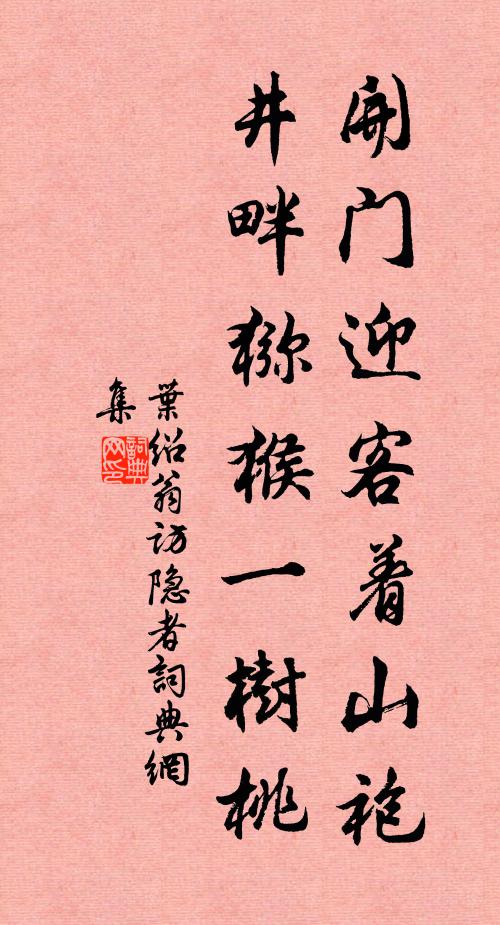 開門迎客着山袍
井畔獼猴一樹桃
葉紹翁訪隐者詞典網
集
詞典
网印